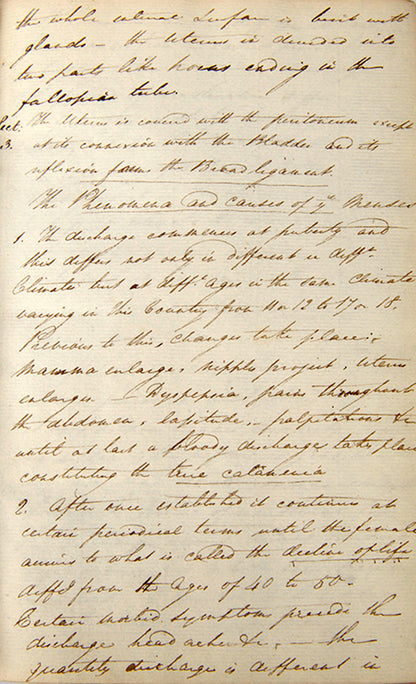 the whole internal surface is beset with
glands – the Uterus is divided into
two parts like horns ending in the
fallopian tubes
Lect. The Uterus is covered with the peritoneum except
3. at its connexion with the Bladder and its
reflexion forms the Broad ligament.
The Phenomena and causes of ye Menses
1. The discharge commences at puberty and
this differs not only in different
Climates but at difft. ages in the same Climate
varying in this Country from 11 or 12 to 17 or 18.
Previous to this, changes take place;
mamma enlarge, nipples project, uterus
enlarges. Dyspepsia, pains throughout
the abdomen, lassitude, – palpitations &c
until at last a bloody discharge takes place
constituting the true catamenia
2. After once established it continues at
certain periodical terms until the female
arrives to what is called the decline of life
diffg from the ages of 40 to 50.
Certain morbid symptoms precede the
discharge head aches &c, – the
quantity discharge is different in